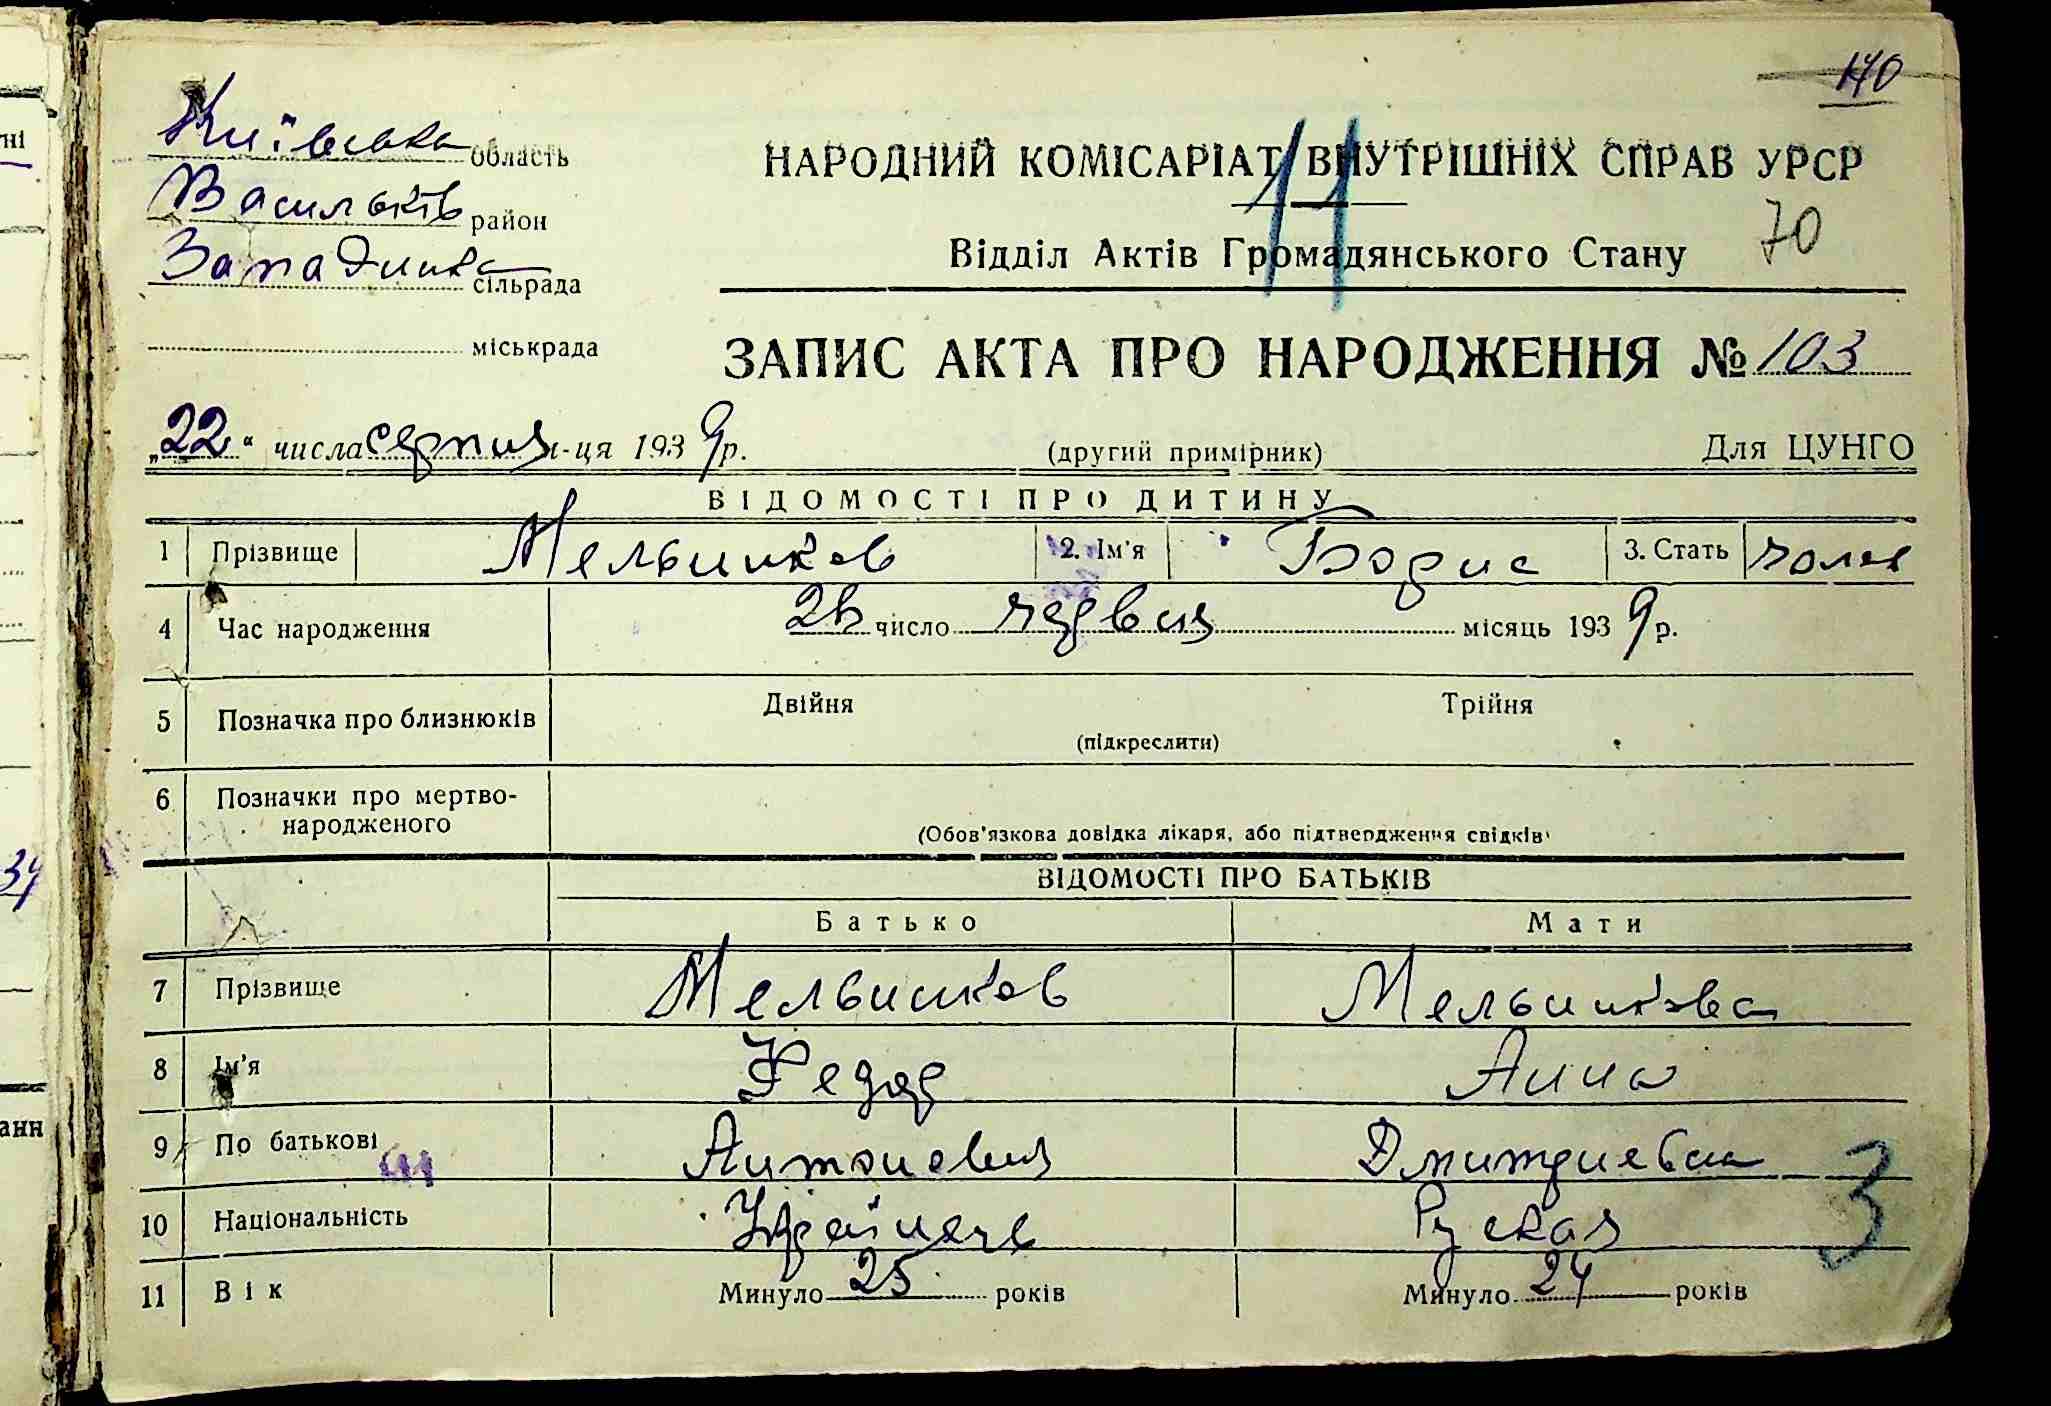 140
Київська область
Васильків район
Западинка сільрада
міськрада
НАРОДНИЙ КОМІСАРІАТ ВНУТРІШНІХ СПРАВ УРСР
11
70
Відділ Актів Громадянського Стану
ЗАПИС АКТА ПРО НАРОДЖЕННЯ № 103
„22“ числа серпня м-ця 1939 р. (другий примірник) Для ЦУНГО
ВІДОМОСТІ ПРО ДИТИНУ
1 Прізвище Мельников 2. Ім'я Борис 3. Стать чолов
4 Час народження число червня місяць 1939 р.
5 Позначка про близнюків Двійня Трійня
(підкреслити)
6 Позначки про мертво-
народженого
(Обов'язкова довідка лікаря, або підтвердження свідків)
ВІДОМОСТІ ПРО БАТЬКІВ
Батько Мати
7 Прізвище Мельников Мельникова
8 Ім'я Федор Анна
9 По батькові Антонович Дмитриевна
10 Національність Українець Руская
3
11 Вік Минуло 25 років Минуло 24 років